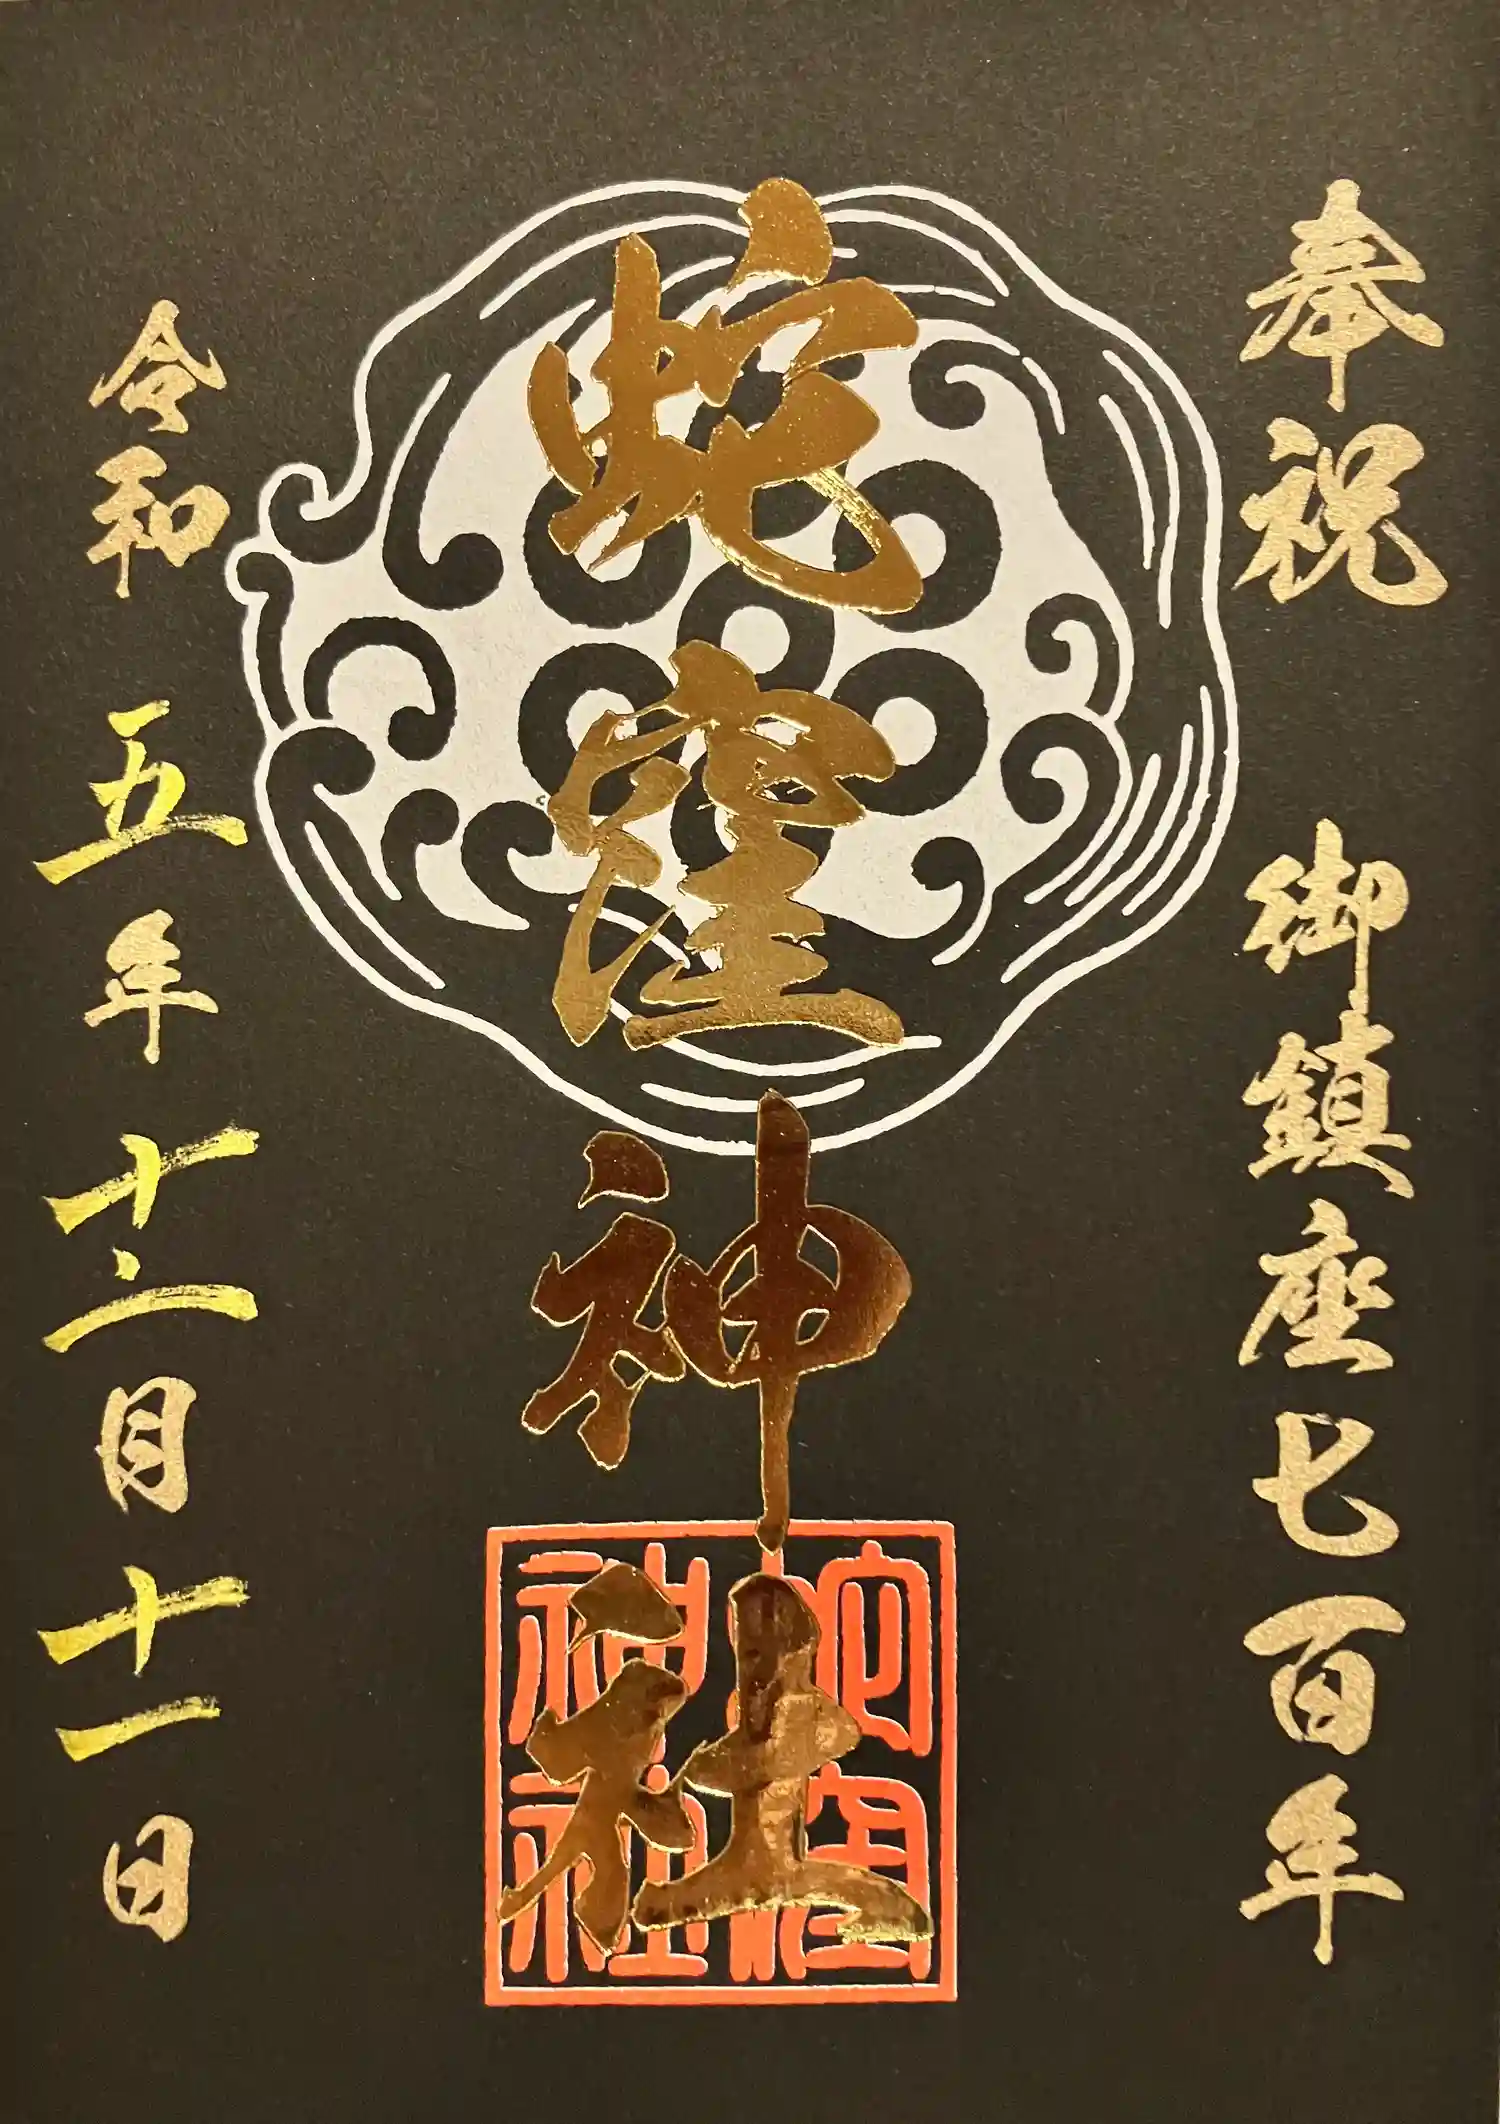 奉祝 御鎮座七百年
蛇窪神社
蛇窪
神社
令和五年十二月十一日